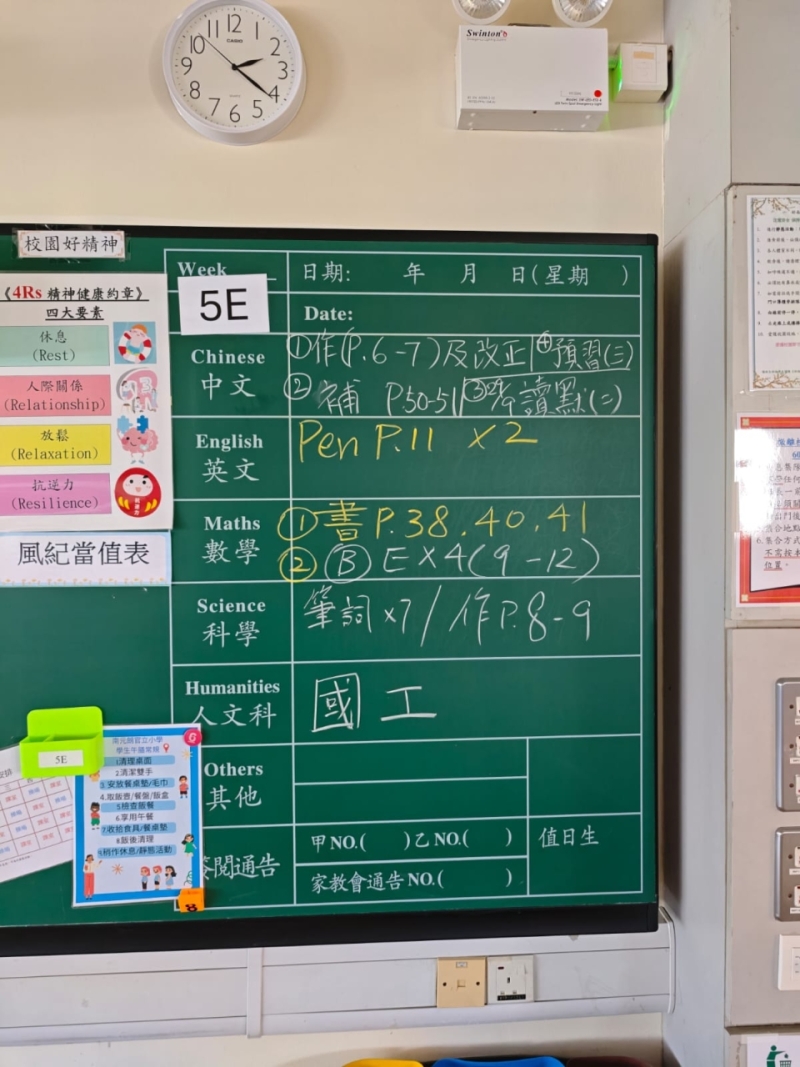 12
1
2
3
4
5
6
7
8
9
10
11
CASIO
Swinton
校園好精神
《4Rs 精神健康約章》
四大要素
休息
(Rest)
人際關係
(Relationship)
放鬆
(Relaxation)
抗逆力
(Resilience)
風紀當值表
Week
5E
日期: 年 月 日(星期 )
Date:
Chinese
中文
①作(P.6-7)及改正 ④預習(三)
② 補 P.50-51 ③ 讀默(二)
English
英文
Pen P.11 x2
Maths
數學
①書 P.38.40.41
② Ⓑ E X4(9-12)
Science
科學
筆詞x7/作P.8-9
Humanities
人文科
國 工
Others
其他
閱通告
甲NO.( )乙NO.( )
家教會通告NO.( )
值日生
5E
學生午膳常規
1清理桌面
2.清潔雙手
3.安放餐桌墊/毛巾
4.取飯壺/餐盤/飯盒
5檢查飯餐
6.享用午餐
7.收拾食具/餐桌墊
8飯後清理
9.稍作休息/靜態活動